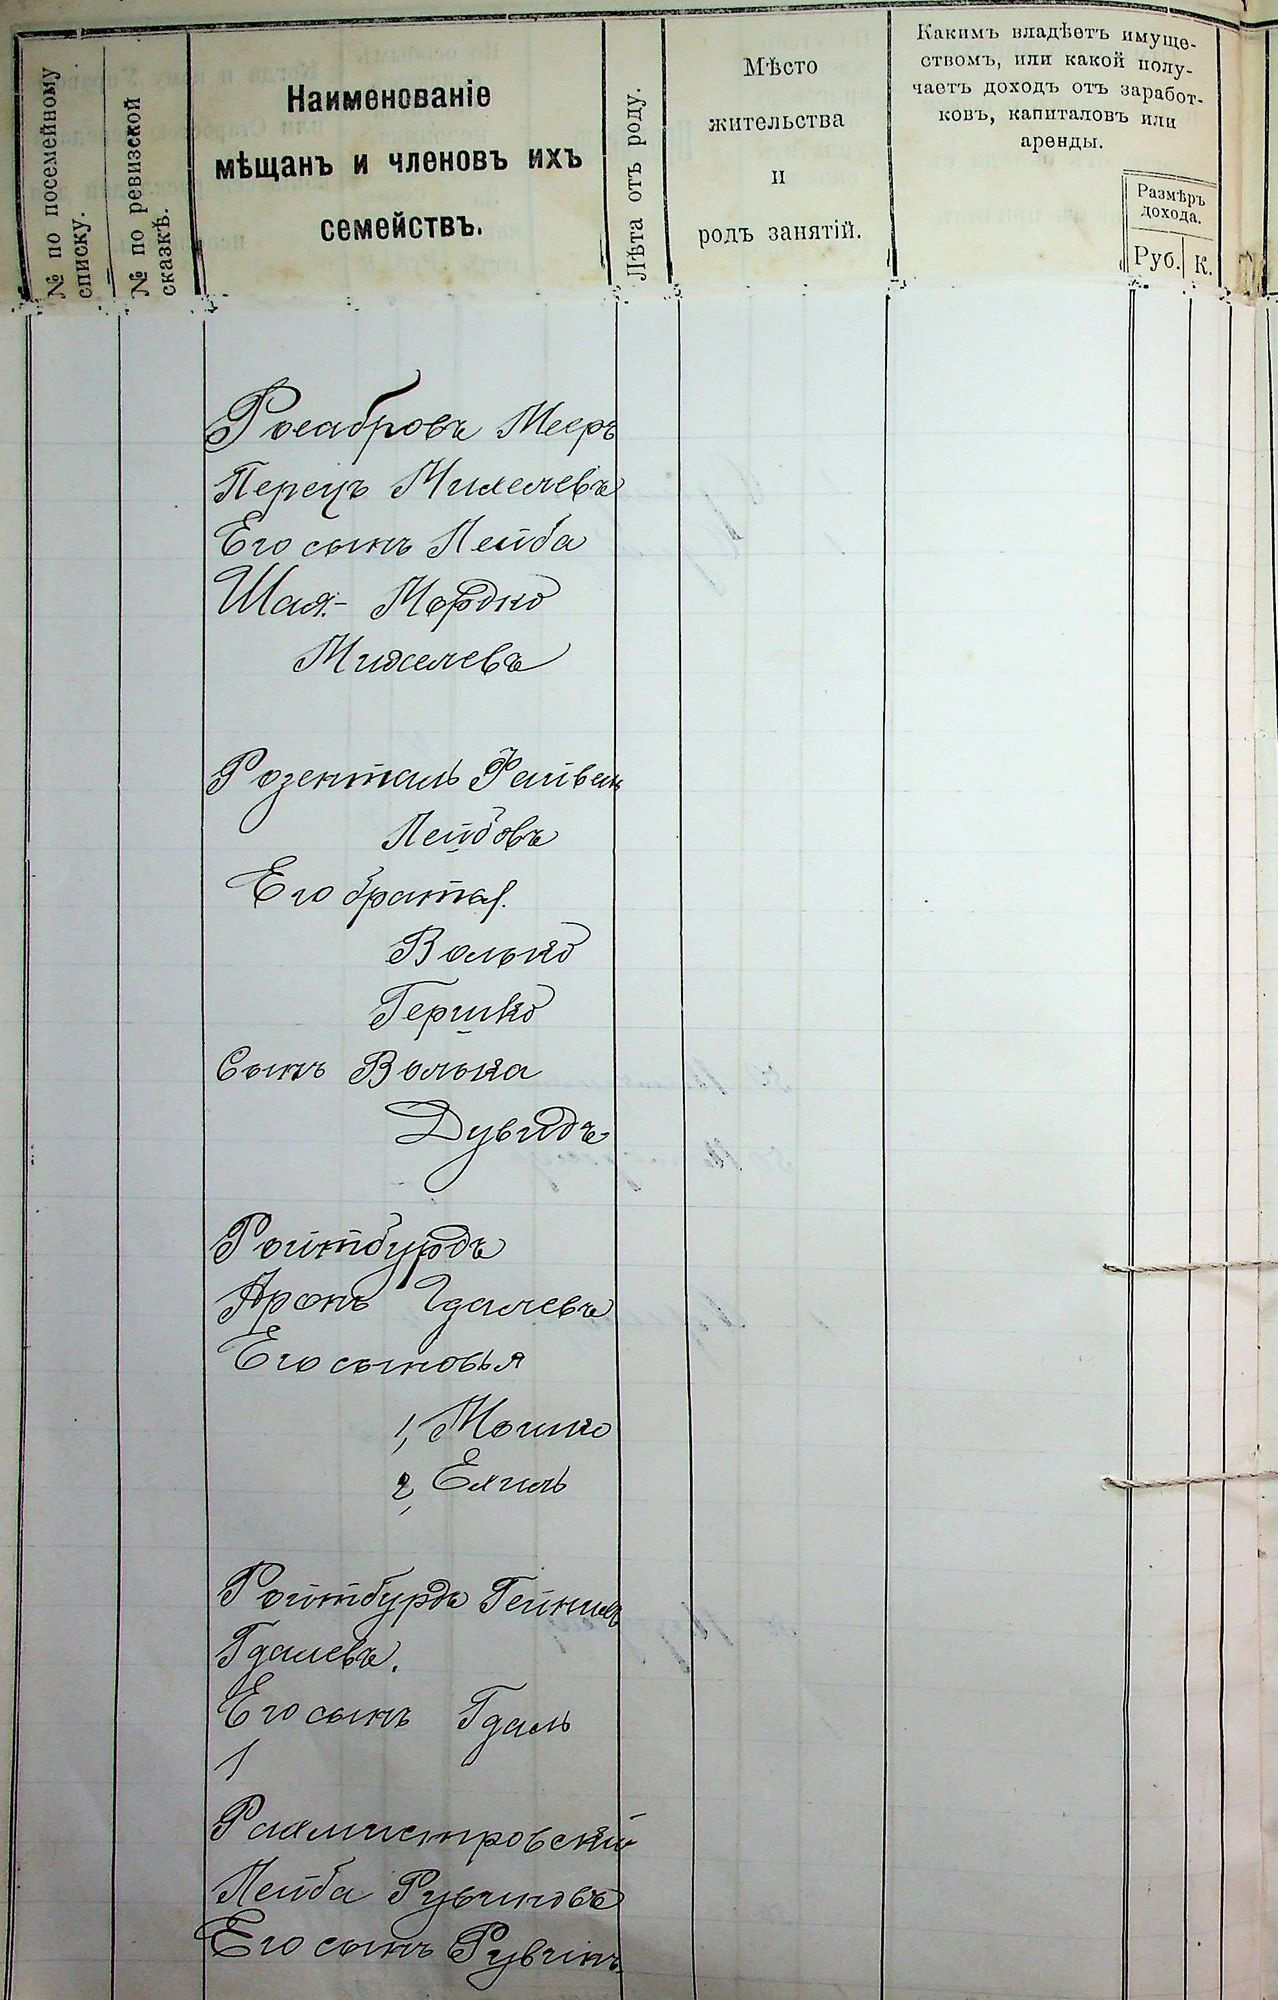 № по посемейному
списку.
№ по ревизской
сказкѣ.
Наименованіе
мѣщанъ и членовъ ихъ
семействъ.
Лѣта отъ роду.
Мѣсто
жительства
и
родъ занятій.
Какимъ владѣетъ имуще-
ствомъ, или какой полу-
чаетъ доходъ отъ заработ-
ковъ, капиталовъ или
аренды.
Размѣръ
дохода.
Руб. К.
Мееръ
Перецъ Михелевъ
Его сынъ Лейба
Шая - Мордко
Михелевъ
Розенталь Файвель
Лейбовъ
Его братья.
Волько
Гершко
Сынъ Волька
Дувидъ
Ройтбурдъ
Аронъ Гдалевъ
Его сыновья
1, Мошко
2, Ехиль
Ройтбурдъ
Гдалевъ.
Его сынъ Гдаль
1
Рахмистровскій
Лейба Рувиновъ
Его сынъ Рувинъ